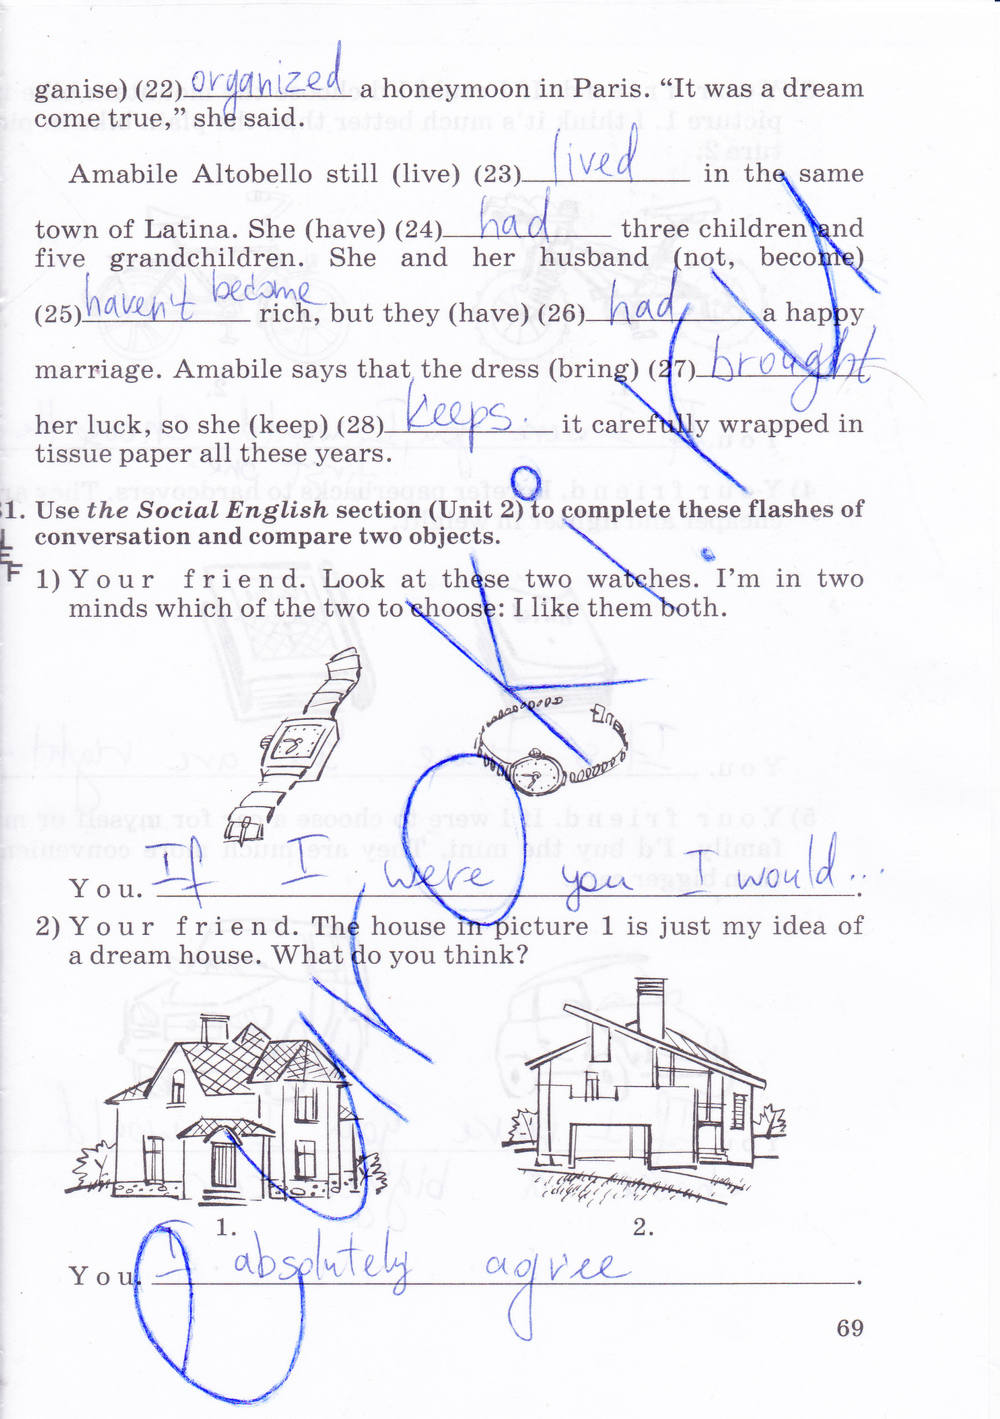 ganise) (22) organized a honeymoon in Paris. “It was a dream
come true,” she said.
Amabile Altobello still (live) (23) lived in the same
town of Latina. She (have) (24) had three children and
five grandchildren. She and her husband (not, become)
(25) haven't become rich, but they (have) (26) had a happy
marriage. Amabile says that the dress (bring) (27) brought
her luck, so she (keep) (28) keeps. it carefully wrapped in
tissue paper all these years.
1. Use the Social English section (Unit 2) to complete these flashes of
conversation and compare two objects.
1) Your friend. Look at these two watches. I’m in two
minds which of the two to choose: I like them both.
You. If I were you I would... .
2) Your friend. The house in picture 1 is just my idea of
a dream house. What do you think?
1. 2.
You. I absolutely agree .
69